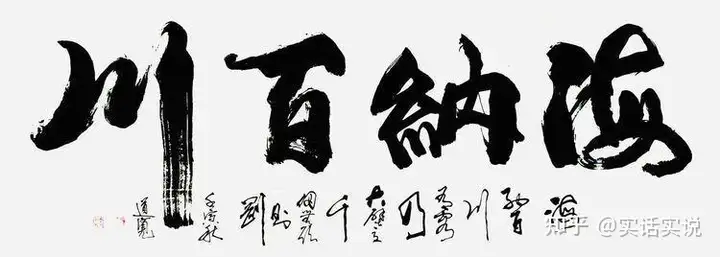 海納百川
海納百川有容乃大壁立千仞無欲則剛
知乎 @实话实说